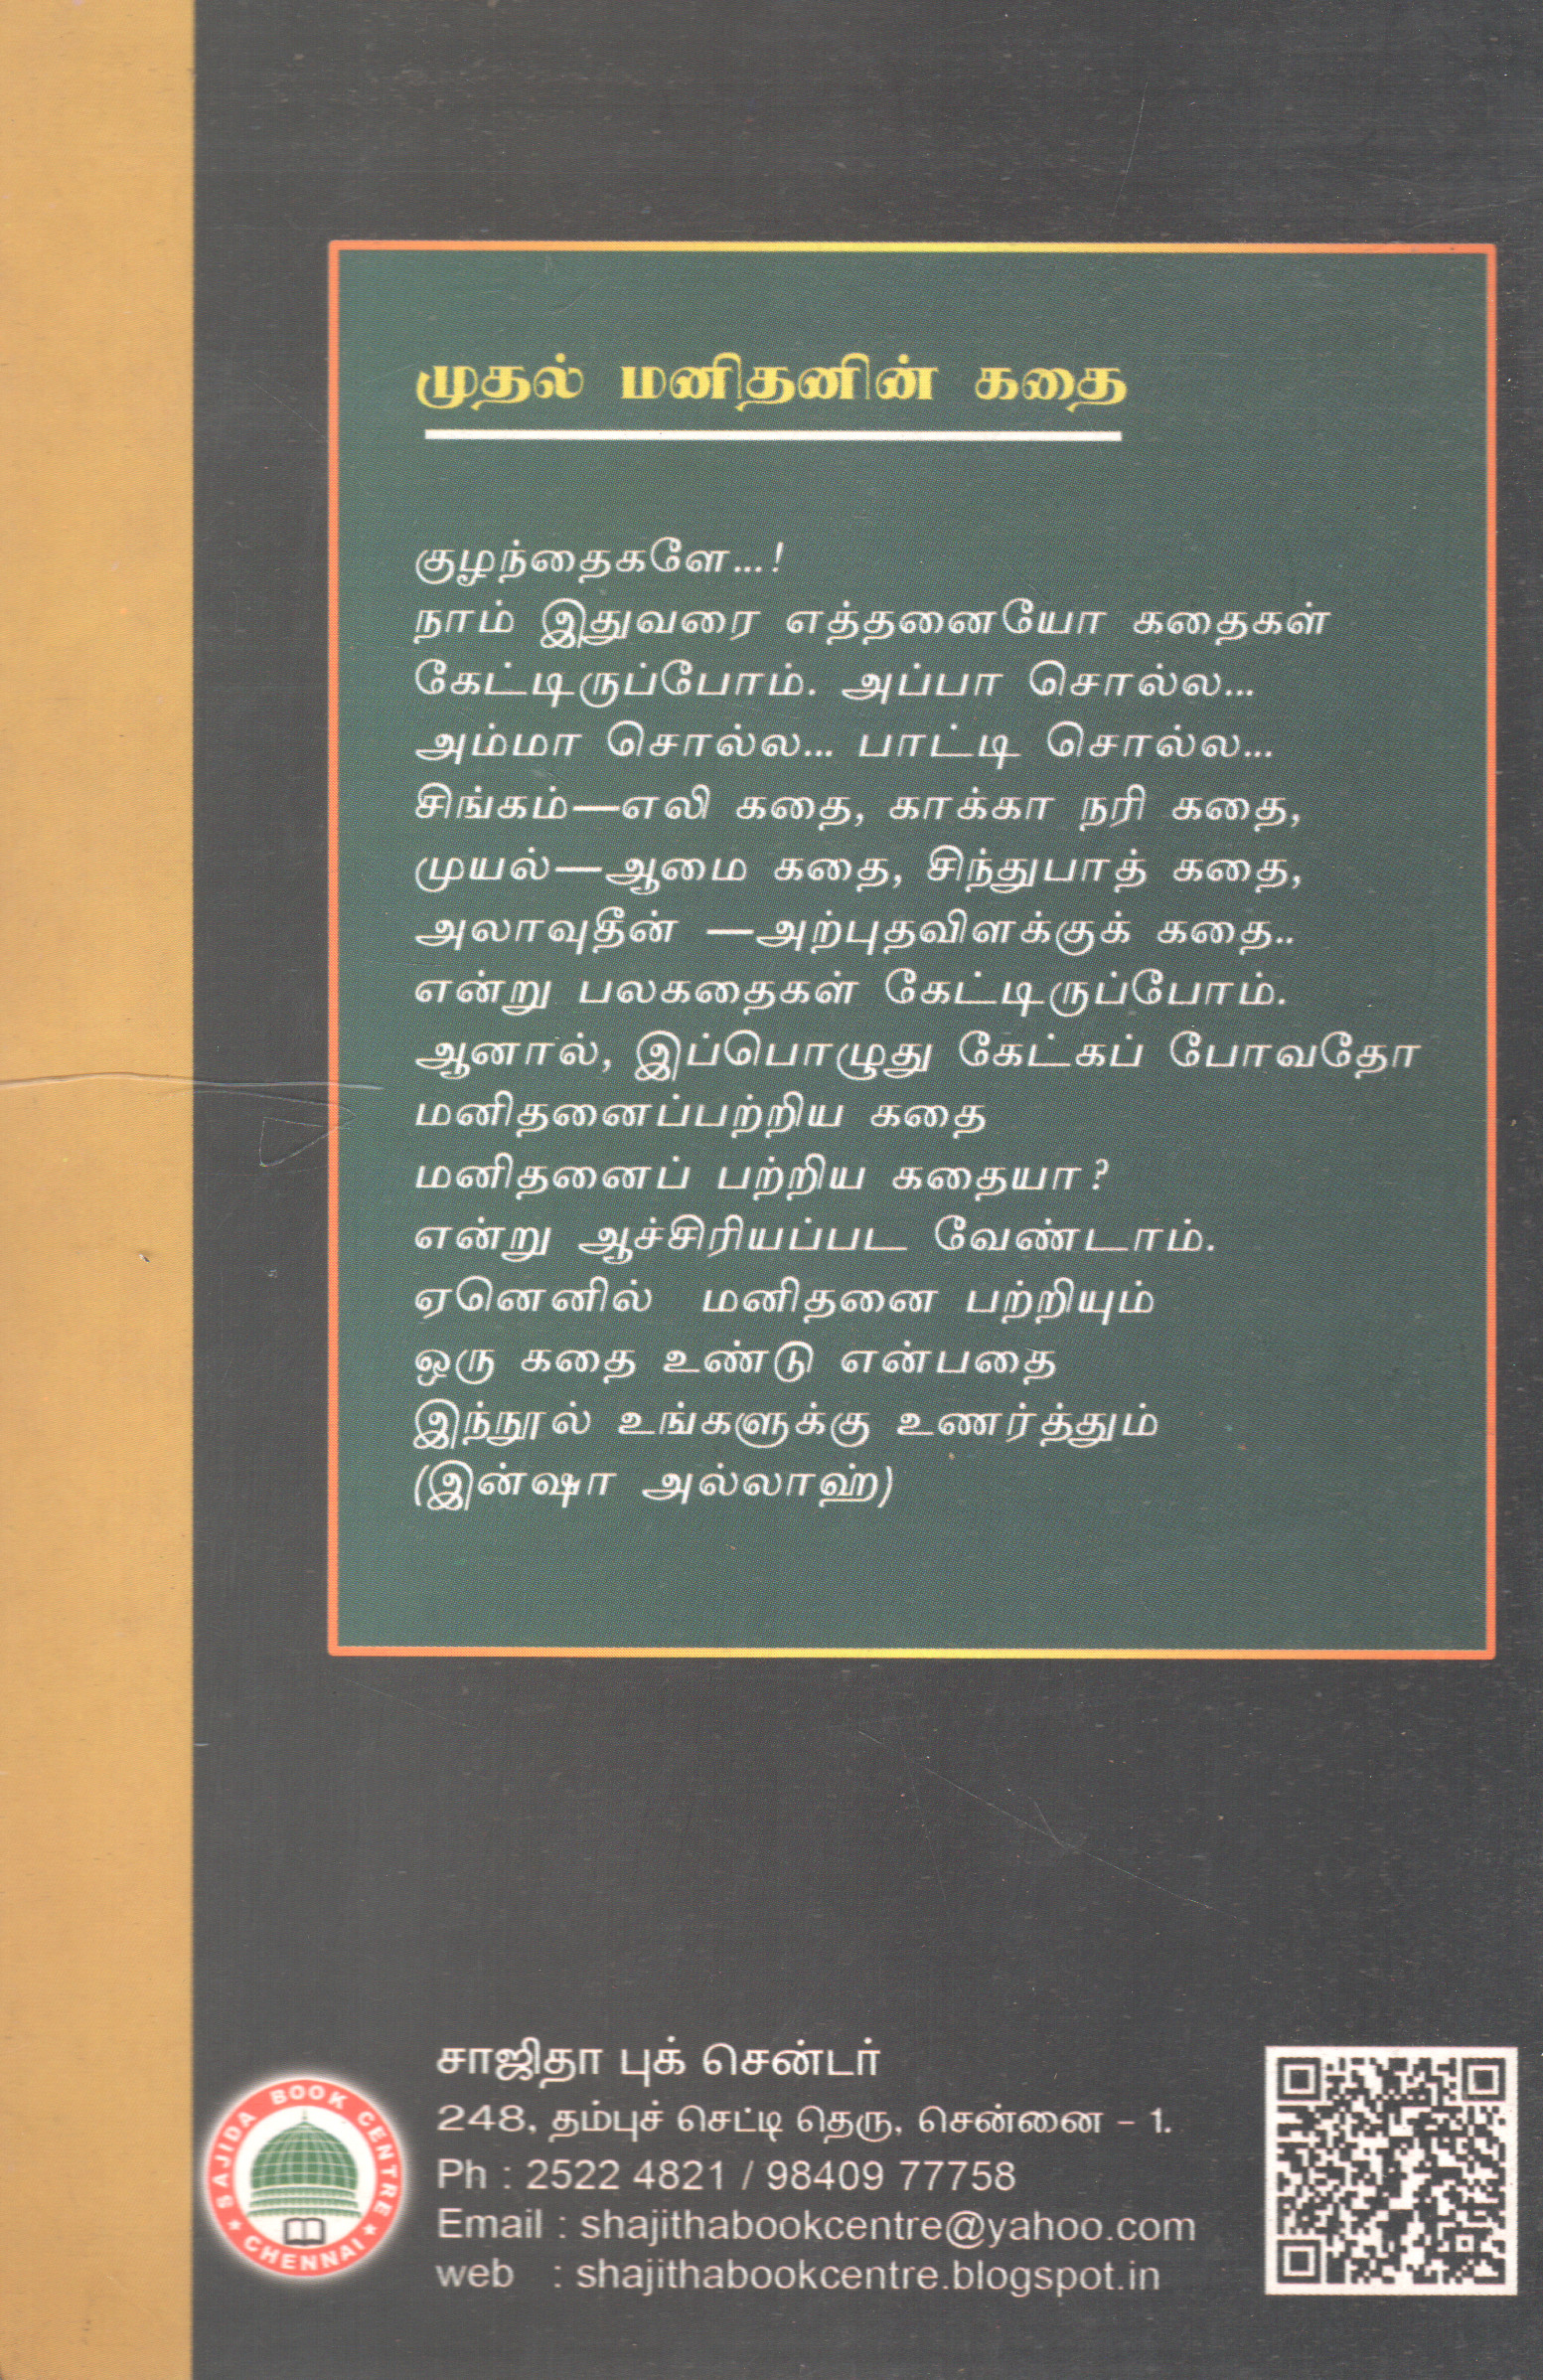 முதல் மனிதனின் கதை
குழந்தைகளே...!
நாம் இதுவரை எத்தனையோ கதைகள்
கேட்டிருப்போம். அப்பா சொல்ல...
அம்மா சொல்ல... பாட்டி சொல்ல...
சிங்கம்—எலி கதை, காக்கா நரி கதை,
முயல்—ஆமை கதை, சிந்துபாத் கதை,
அலாவுதீன் —அற்புதவிளக்குக் கதை..
என்று பலகதைகள் கேட்டிருப்போம்.
ஆனால், இப்பொழுது கேட்கப் போவதோ
மனிதனைப்பற்றிய கதை
மனிதனைப் பற்றிய கதையா?
என்று ஆச்சிரியப்பட வேண்டாம்.
ஏனெனில் மனிதனை பற்றியும்
ஒரு கதை உண்டு என்பதை
இந்நூல் உங்களுக்கு உணர்த்தும்
(இன்ஷா அல்லாஹ்)
சாஜிதா புக் சென்டர்
248, தம்புச் செட்டி தெரு, சென்னை - 1.
Ph : 2522 4821 / 98409 77758
Email : shajithabookcentre@yahoo.com
web : shajithabookcentre.blogspot.in
SAJIDA BOOK CENTRE
★ CHENNAI ★